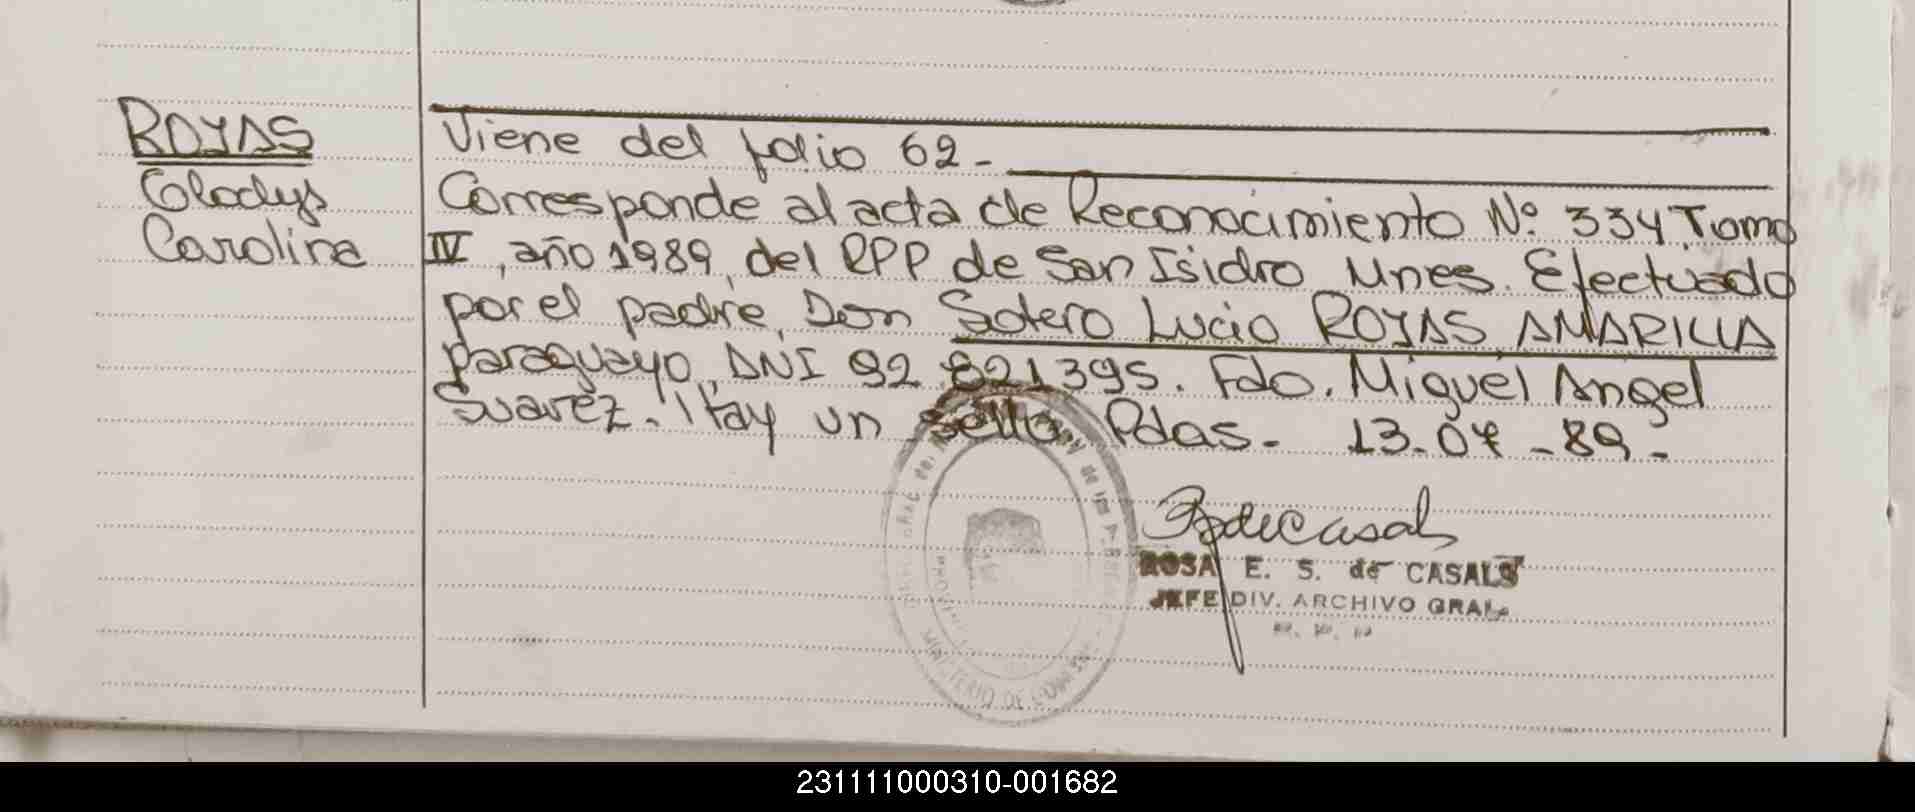 ROJAS
Gladys
Carolina
Viene del folio 62-
Corresponde al acta de Reconocimiento Nº 334 Tomo
IV, año 1989, del RPP de San Isidro Mnes. Efectuado
por el padre, Don Sotero Lucio ROJAS AMARILLA
paraguayo, DNI 92 621395. Fdo. Miguel Angel
Suarez. Hay un sello. Pdas.- 13-07-89-
ROSA E. S. de CASALS
JEFE DIV. ARCHIVO GRAL.
MINISTERIO DE
231111000310-001682